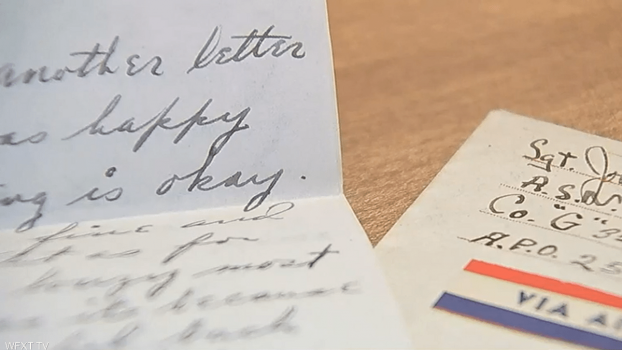 another letter
as happy
ng is okay.
fine and
t as for
hungry most
because
back
Sgt. Jo
A.S.N.
Co. "G" 3
A.P.O. 25
VIA AI
WFXT TV